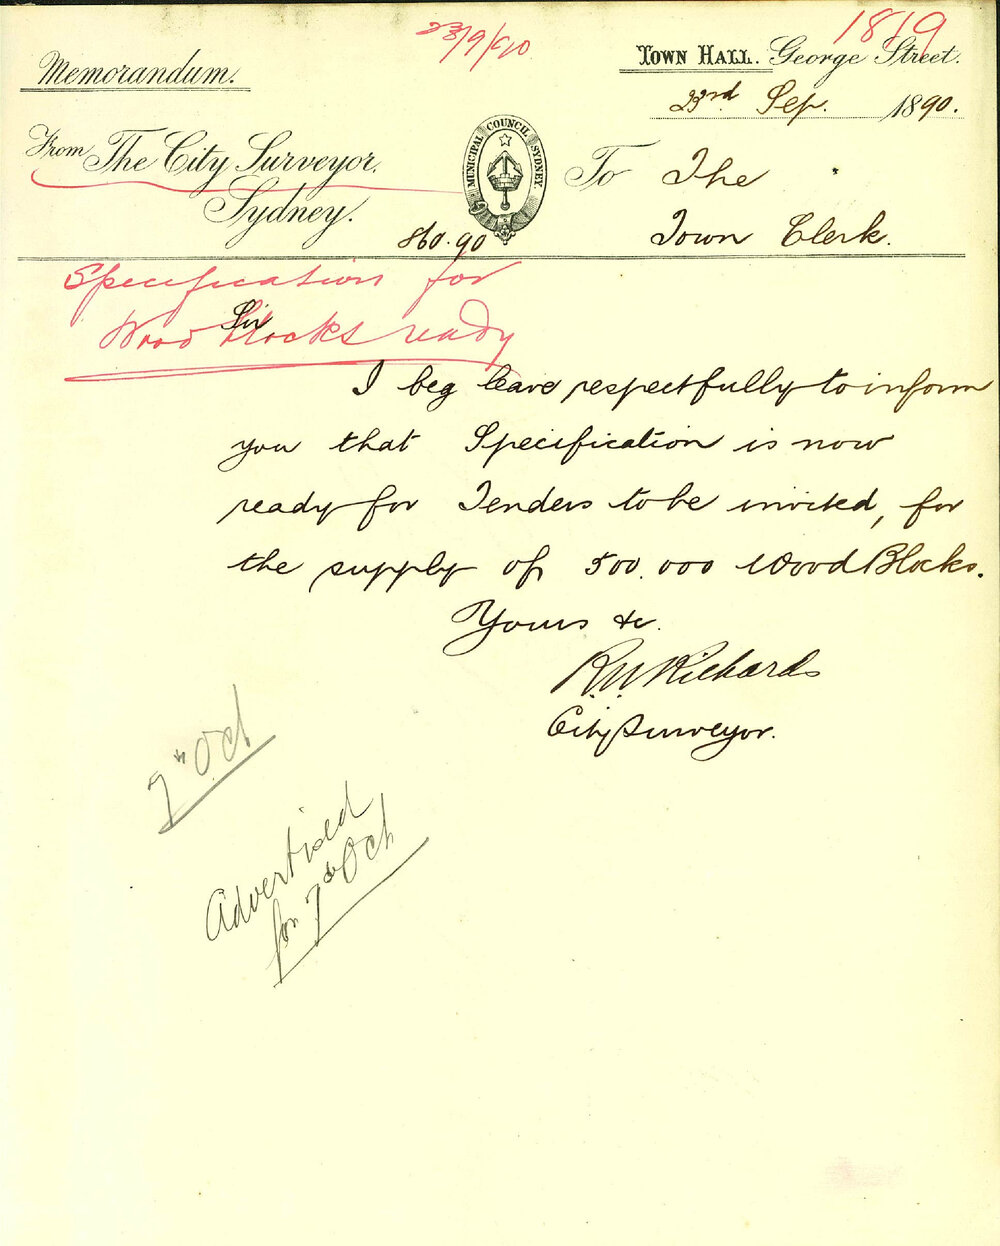 23/9/90
1819
Memorandum.
TOWN HALL. George Street.
23rd Sep. 1890.
From The City Surveyor,
Sydney.
MUNICIPAL COUNCIL SYDNEY.
To The
Town Clerk.
860.90
Specification for
Wood blocks ready
Sir
I beg leave respectfully to inform
you that Specification is now
ready for Tenders to be invited, for
the supply of 500.000 Wood Blocks.
Yours &c.
R.W. Richards
City Surveyor.
7th Oct
Advertised
for 7th Oct